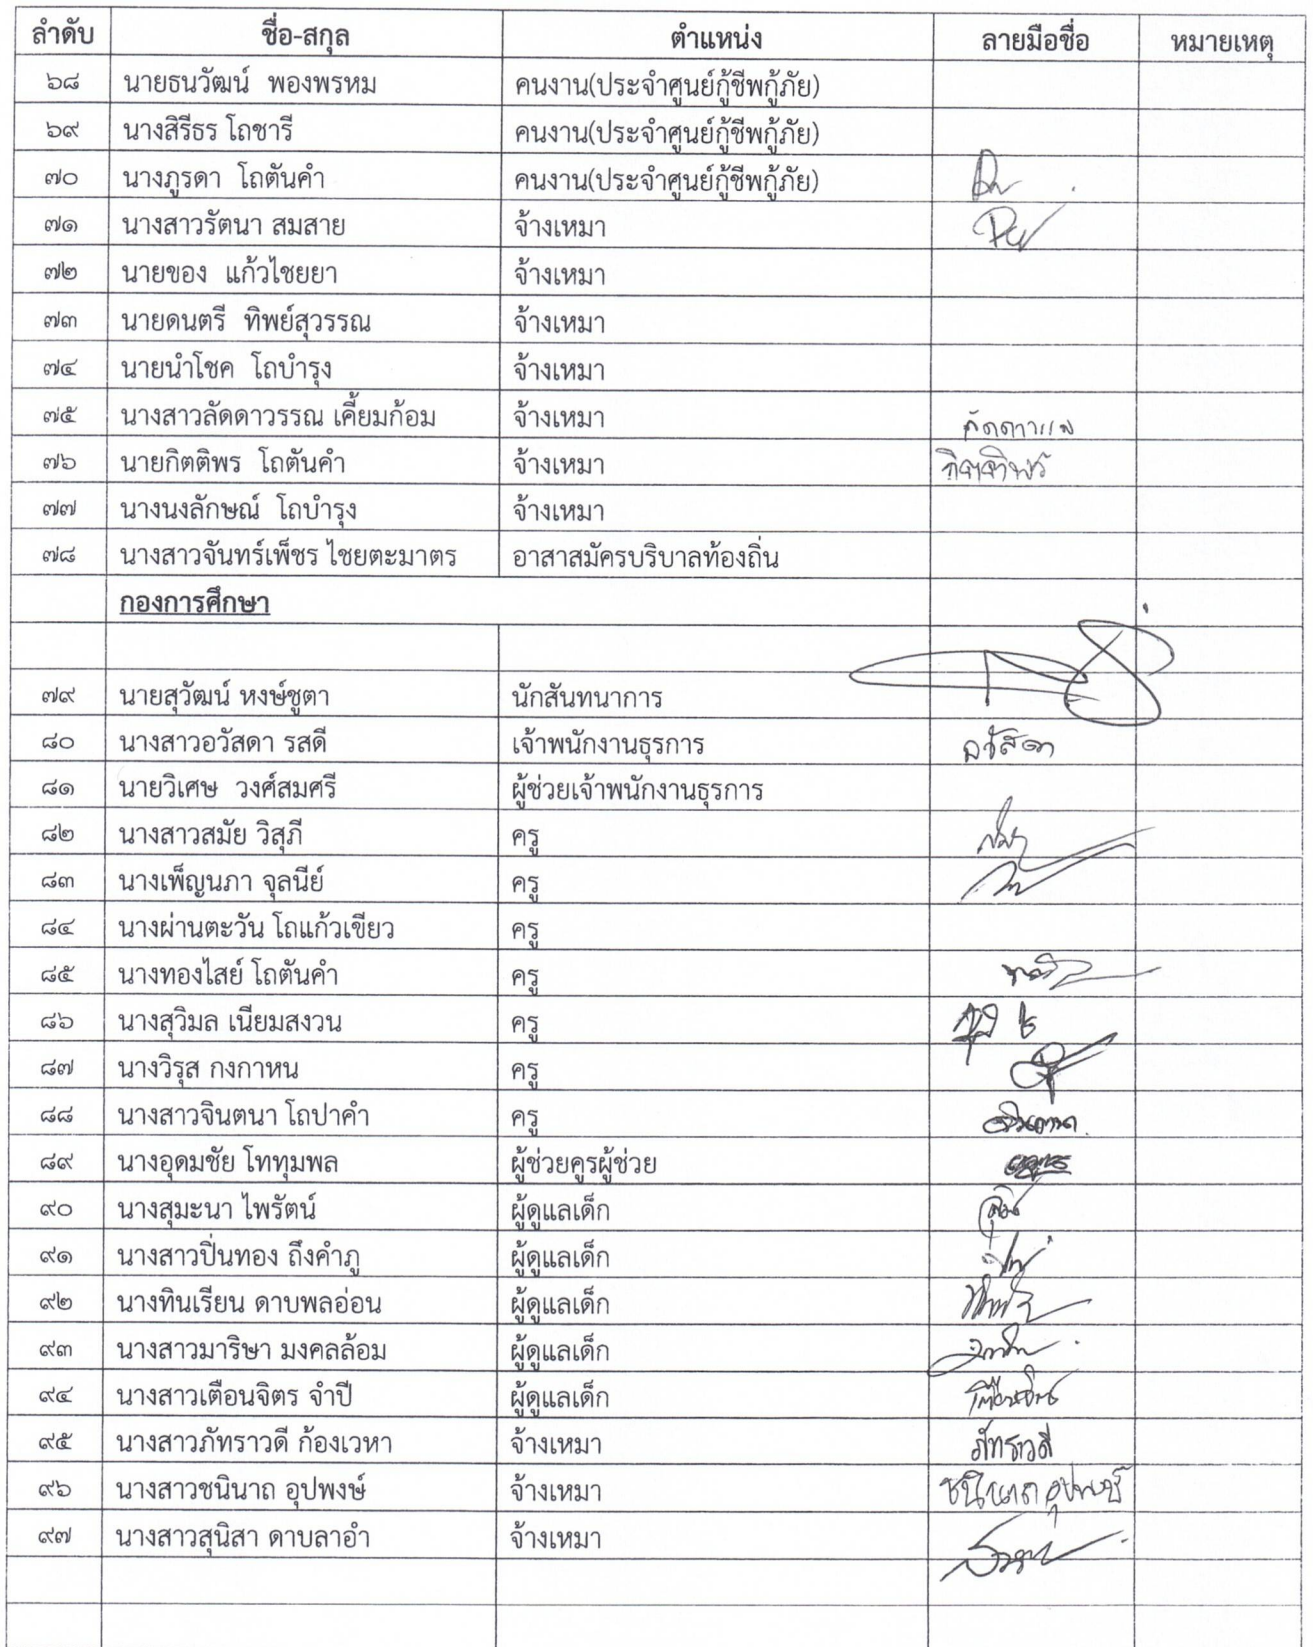 ลำดับ ชื่อ-สกุล ตำแหน่ง ลายมือชื่อ หมายเหตุ
๖๘ นายธนวัฒน์ พองพรหม คนงาน(ประจำศูนย์กู้ชีพกู้ภัย)
๖๙ นางสิรีธร โถชารี คนงาน(ประจำศูนย์กู้ชีพกู้ภัย)
๗๐ นางภูรดา โถตันคำ คนงาน(ประจำศูนย์กู้ชีพกู้ภัย)
๗๑ นางสาวรัตนา สมสาย จ้างเหมา
๗๒ นายของ แก้วไชยยา จ้างเหมา
๗๓ นายดนตรี ทิพย์สุวรรณ จ้างเหมา
๗๔ นายนำโชค โถบำรุง จ้างเหมา
๗๕ นางสาวลัดดาวรรณ เคี้ยมก้อม จ้างเหมา
๗๖ นายกิตติพร โถตันคำ จ้างเหมา กิตติพร
๗๗ นางนงลักษณ์ โถบำรุง จ้างเหมา
๗๘ นางสาวจันทร์เพ็ชร ไชยตะมาตร อาสาสมัครบริบาลท้องถิ่น
กองการศึกษา
๗๙ นายสุวัฒน์ หงษ์ชูตา นักสันทนาการ
๘๐ นางสาวอวัสดา รสดี เจ้าพนักงานธุรการ อวัสดา
๘๑ นายวิเศษ วงศ์สมศรี ผู้ช่วยเจ้าพนักงานธุรการ
๘๒ นางสาวสมัย วิสุภี ครู
๘๓ นางเพ็ญนภา จุลนีย์ ครู
๘๔ นางผ่านตะวัน โถแก้วเขียว ครู
๘๕ นางทองไสย์ โถตันคำ ครู
๘๖ นางสุวิมล เนียมสงวน ครู
๘๗ นางวิรุส กงกาหน ครู
๘๘ นางสาวจินตนา โถปาคำ ครู
๘๙ นางอุดมชัย โททุมพล ผู้ช่วยคูรผู้ช่วย
๙๐ นางสุมะนา ไพรัตน์ ผู้ดูแลเด็ก
๙๑ นางสาวปิ่นทอง ถึงคำภู ผู้ดูแลเด็ก
๙๒ นางทินเรียน ดาบพลอ่อน ผู้ดูแลเด็ก
๙๓ นางสาวมาริษา มงคลล้อม ผู้ดูแลเด็ก
๙๔ นางสาวเตือนจิตร จำปี ผู้ดูแลเด็ก
๙๕ นางสาวภัทราวดี ก้องเวหา จ้างเหมา ภัทราวดี
๙๖ นางสาวชนินาถ อุปพงษ์ จ้างเหมา ชนินาถ อุปพงษ์
๙๗ นางสาวสุนิสา ดาบลาอำ จ้างเหมา